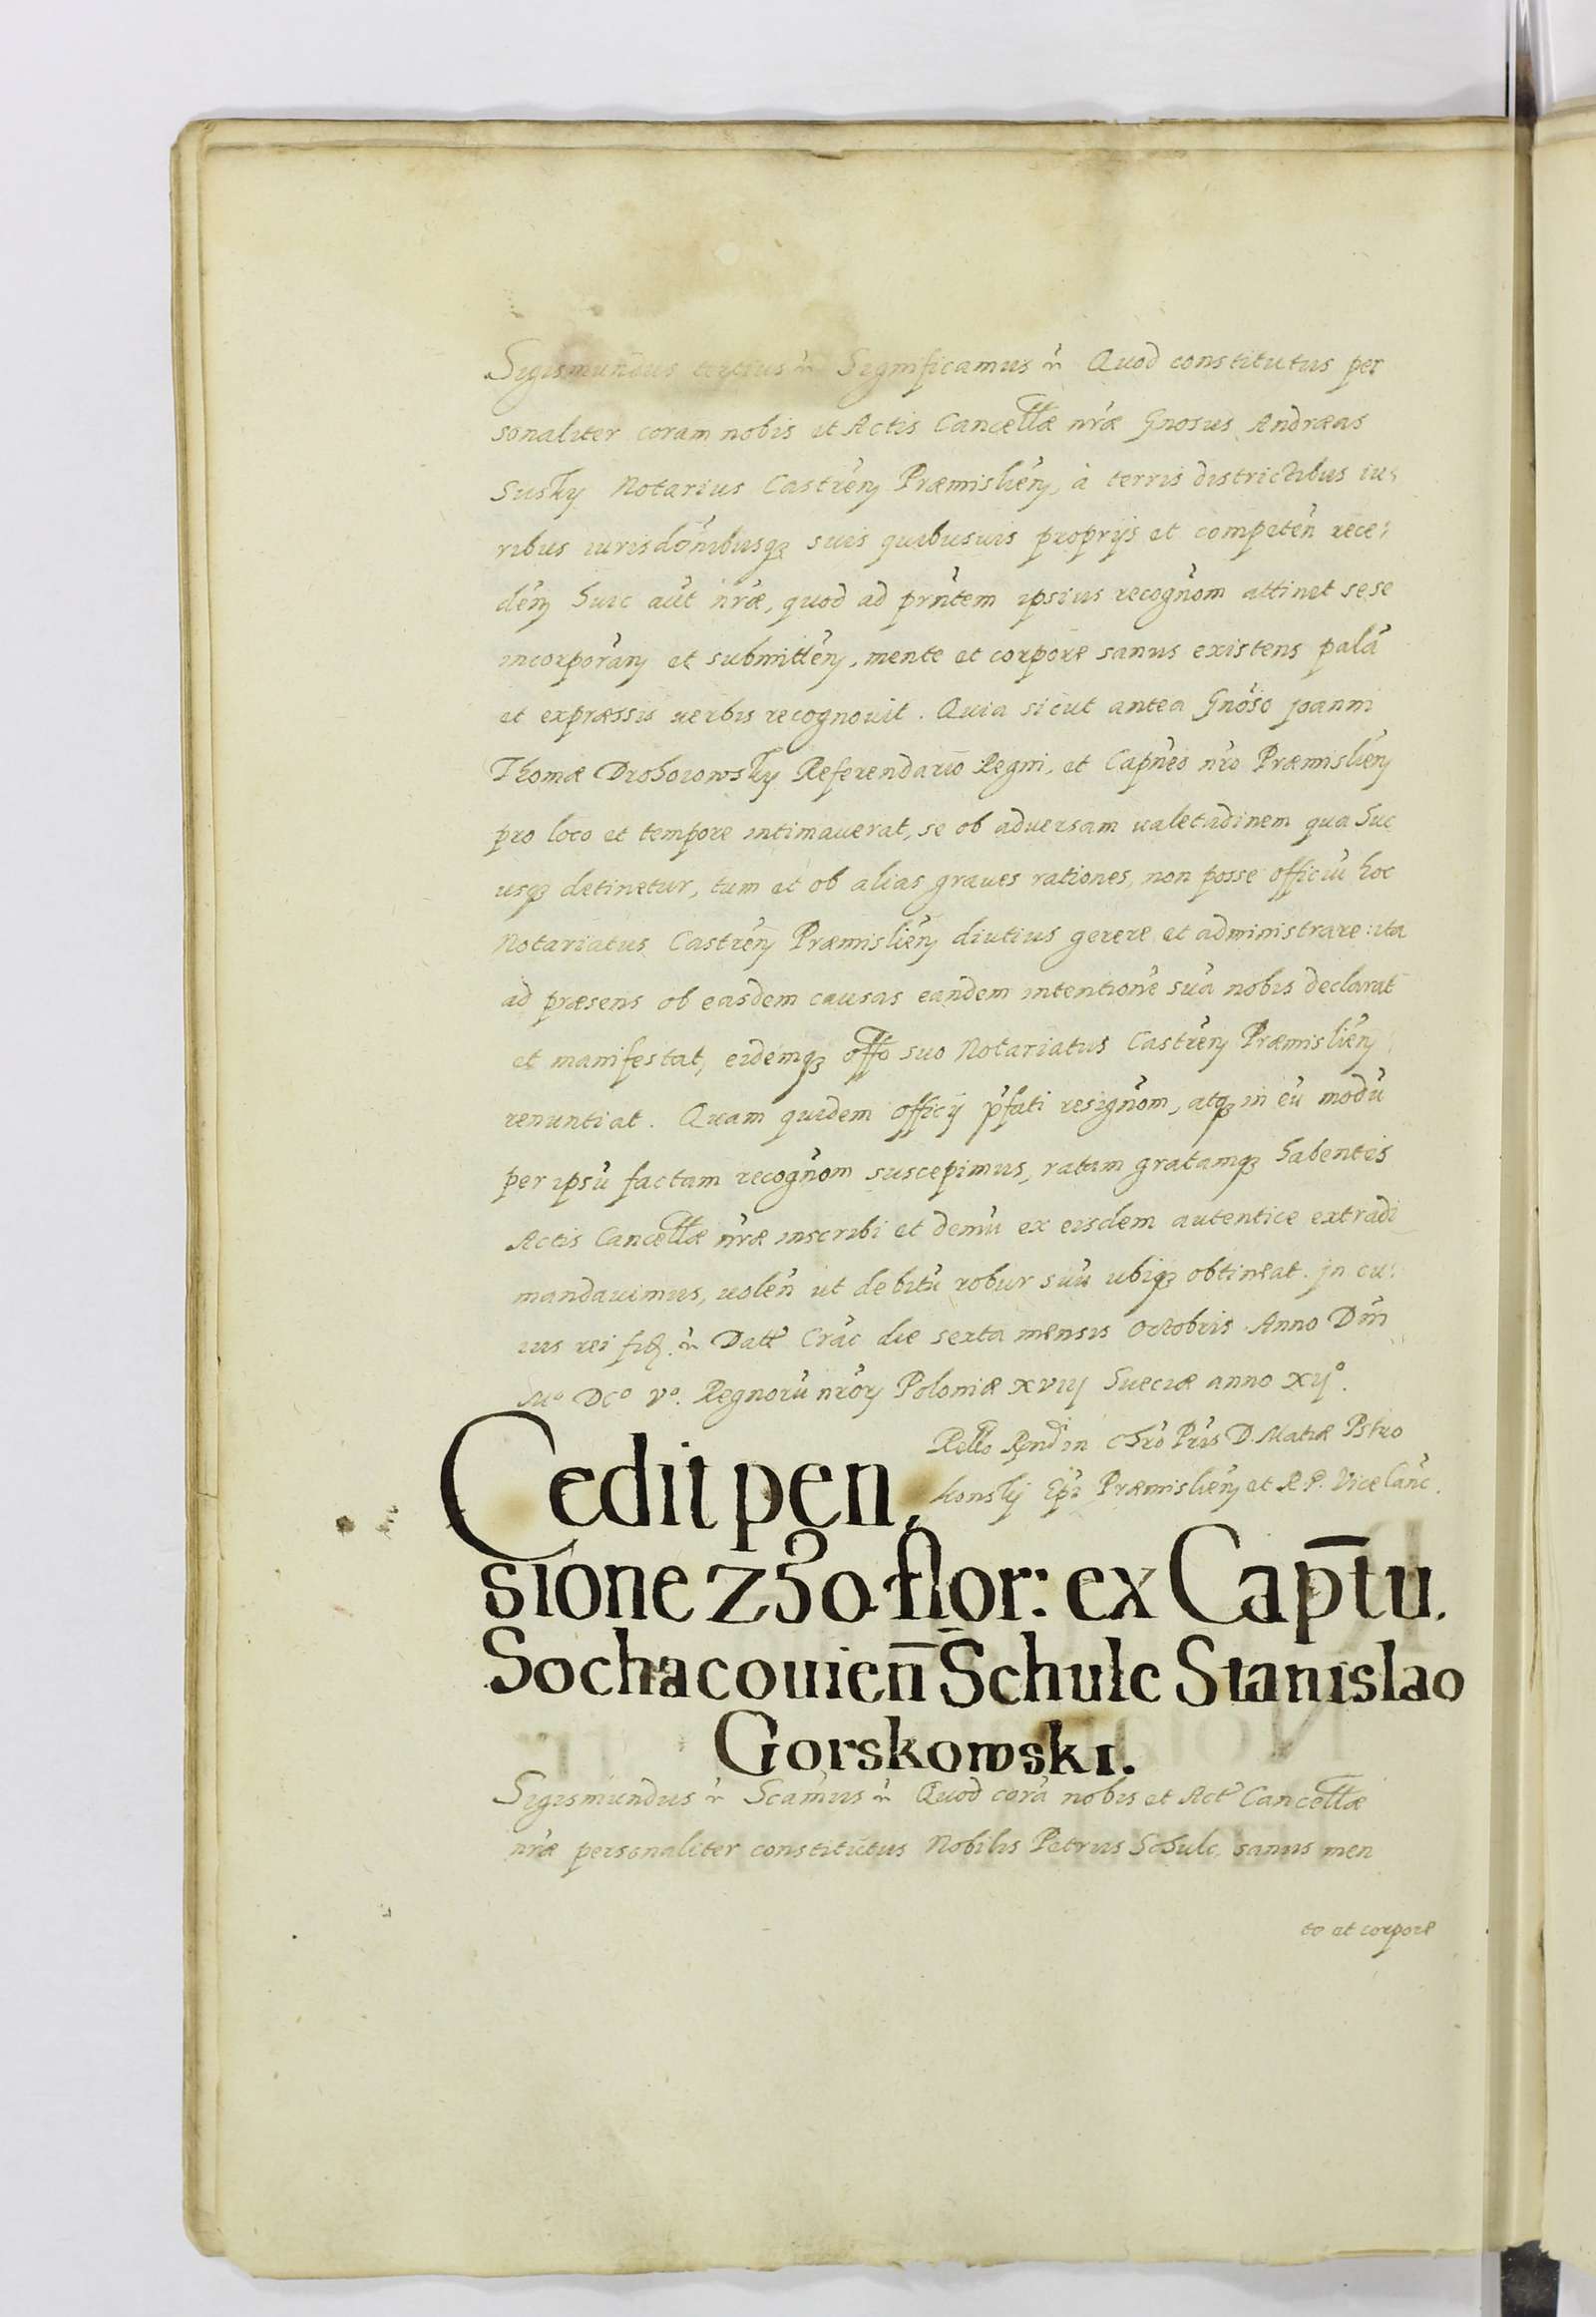 Sigismundus tertius etc Significamus etc Quod constitutus per
sonaliter coram nobis et Actis Cancellæ nr̃æ Gnosus Andræas
Susky Notarius Castreñ Præmislieñ, à terris districtibus iu,
ribus iurisdõnibusqꝫ suis quibusuis proprijs et competeñ rece,
deñ huic aũt nr̃æ, quod ad prñtem ipsius recognõm attinet sese
incorporañ et submitteñ, mente et corpore sanus existens palã
et expræssis uerbis recognouit. Quia sicut antea Gnõso Joanni
Thomæ Drohoiowsky Referendario Regni, et Capñeo nr̃o Præmislieñ
pro loco et tempore intimauerat, se ob aduersam ualetadinem qua huc
usqꝫ detinetur, tum et ob alias graues rationes, non posse officiũ hoc
Notariatus Castreñ Præmislieñ diutius gerere et administrare: ita
ad præsens ob easdem causas eandem intentionẽ suã nobis declarat
et manifestat, eidemqꝫ offo suo Notariatus Castreñ Præmislieñ
renuntiat. Quam quidem officij p̃fati resignõm, atqꝫ in eũ modũ
per ipsũ factam recognõm suscepimus, ratam gratamqꝫ habentes
Actis Cancellæ nr̃æ inscribi et demũ ex eisdem autentice extradi
mandauimus, uoleñ ut debitũ robur suũ ubiqꝫ obtineat. Jn cu:
ius rei fid. etc Datt̃ Crac̃ die sexta mensis Octobris Anno Dm̃
Mº DCº Vº. Regnorũ nr̃orꝫ Poloniæ XVIIJ Sueciæ anno XIJº.
Rello Rnd in Chro Pr̃is D. Matiæ Pstro
konskij Ep̃i Præmislieñ et R.P. Vicecanc̃.
Cedit pen,
sione 230 flor: ex Cap̃tu.
Sochacouien̄ Schulc Stanislao
Gorskowski.
Sigismundus etc Scãmus etc Quod corã nobis et Act̃ Cancellæ
nr̃æ personaliter constitutus Nobilis Petrus Schulc, sanus men
te et corpore